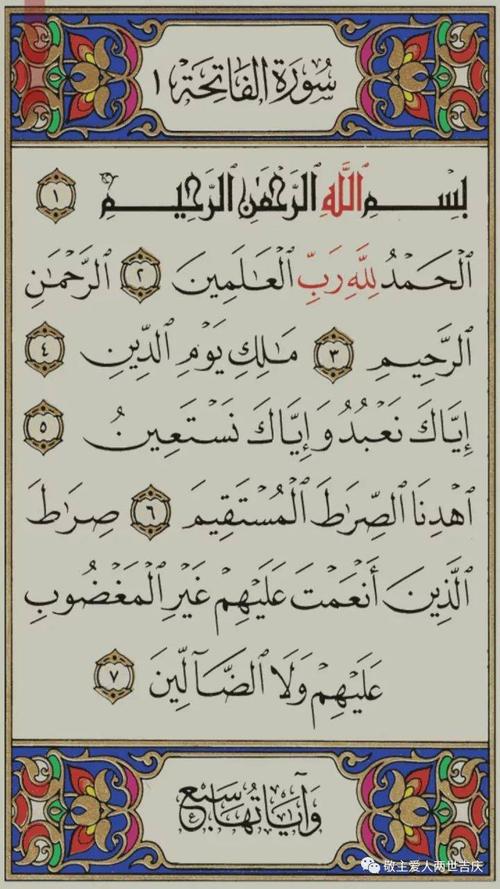 سُورَةُ الفَاتِحَةِ ١
بِسْمِ ٱللَّهِ ٱلرَّحْمَٰنِ ٱلرَّحِيمِ ١
ٱلْحَمْدُ لِلَّهِ رَبِّ ٱلْعَٰلَمِينَ ٢ ٱلرَّحْمَٰنِ
ٱلرَّحِيمِ ٣ مَٰلِكِ يَوْمِ ٱلدِّينِ ٤
إِيَّاكَ نَعْبُدُ وَإِيَّاكَ نَسْتَعِينُ ٥
ٱهْدِنَا ٱلصِّرَٰطَ ٱلْمُسْتَقِيمَ ٦ صِرَٰطَ
ٱلَّذِينَ أَنْعَمْتَ عَلَيْهِمْ غَيْرِ ٱلْمَغْضُوبِ
عَلَيْهِمْ وَلَا ٱلضَّآلِّينَ ٧
وَآيَاتُهَا سَبْعٌ
敬主爱人两世吉庆